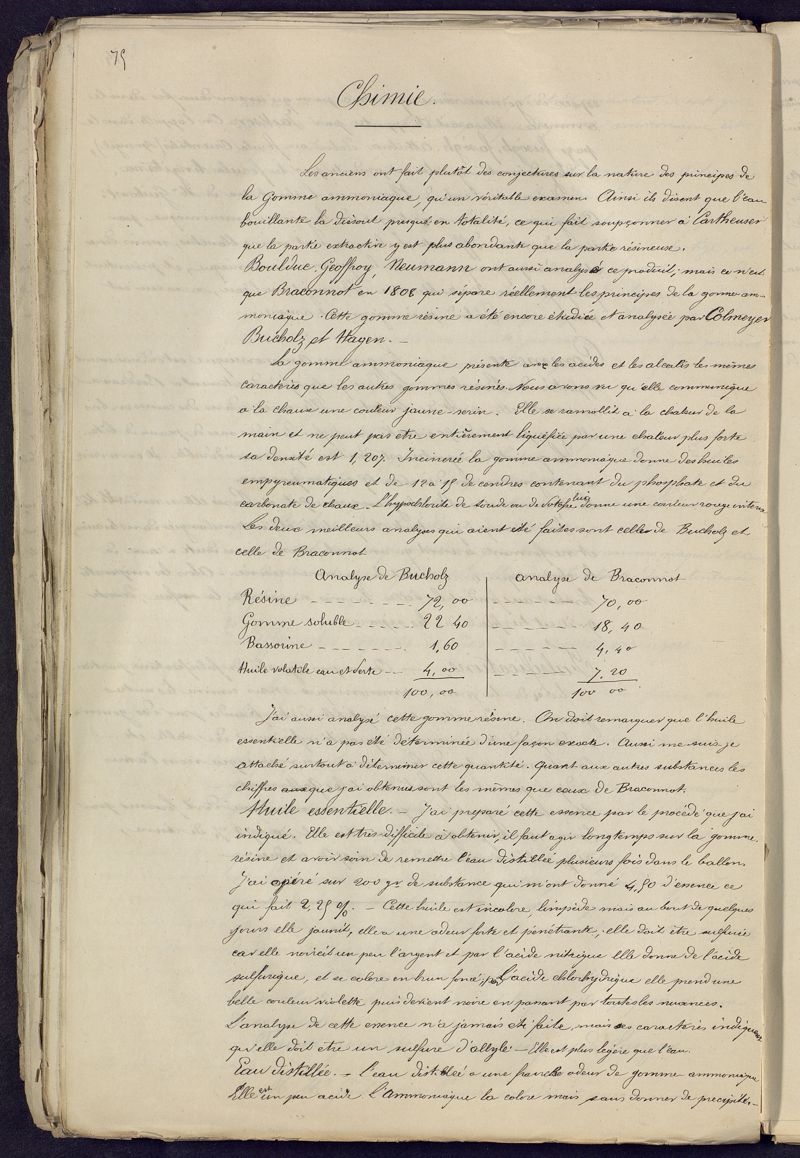 75
Chimie.
Les anciens ont fait plutôt des conjectures sur la nature des principes de
la Gomme ammoniaque, qu'un véritable examen. Ainsi ils disent que l'eau
bouillante la dissout presque en totalité, ce qui fait soupçonner à Cartheuser
que la partie extractive y est plus abondante que la partie résineuse.
Boulduc, Geoffroy, Neumann ont aussi analysé ce produit; mais ce n'est
que Braconnot en 1808 qui sépare réellement les principes de la gomme am-
moniaque. Cette gomme résine a été encore étudiée et analysée par
Bucholz et Hagen. —
La gomme ammoniaque présente avec les acides et les alcalis les mêmes
caractères que les autres gommes résines. Nous avons vu qu'elle communique
à la chaux une couleur jaune-serin. Elle se ramollit à la chaleur de la
main et ne peut pas etre entièrement liquéfiée par une chaleur plus forte
sa densité est 1,207. Incinerée la gomme ammoniaque donne des huiles
empyreumatiques et de 12 à 15 de cendres contenant du phosphate et du
carbonate de chaux. L'hypochlorite de soude ou de potasse lui donne une couleur rouge
Les deux meilleurs analyses qui aient été faites sont celles de Bucholz et
celle de Braconnot
Analyse de Bucholz analyse de Braconnot
Résine ------- 72,00 ------- 70,00
Gomme soluble ----- 22 40 ------- 18,40
Bassorine ------- 1,60 ------- 4,40
Huile volatile eau et perte --- 4,00 ------- 7,20
100,00 100 00
J'ai aussi analysé cette gomme résine. On doit remarquer que l'huile
essentielle n'a pas été déterminée d'une façon exacte. Aussi me suis je
attaché surtout à déterminer cette quantité. Quant aux autres substances les
chiffres que j'ai obtenus sont les mêmes que ceux de Braconnot.
Huile essentielle. — J'ai preparé cette essence par le procédé que j'ai
indiqué. Elle est très difficile à obtenir, il faut agir longtemps sur la gomme
résine et avoir soin de remettre l'eau distillée plusieurs fois dans le ballon.
J'ai opéré sur 200 gr. de substance qui m'ont donné 4,50 d'essence ce
qui fait 2,25 %. — Cette huile est incolore, limpide mais au bout de quelques
jours elle jaunit, elle a une odeur forte et pénétrante, elle doit être sulfurée
car elle noircit un peu l'argent et par l'acide nitrique elle donne de l'acide
sulfurique, et se colore en brun foncé, par l'acide chlorhydrique elle prend une
belle couleur violette puis devient noire en passant par toutes les nuances.
L'analyse de cette essence n'a jamais été faite, mais ses caractères indiquent
qu'elle doit être un sulfure d'allyle — Elle est plus légère que l'eau.
Eau distillée. — L'eau distillée a une franche odeur de gomme ammoniaque
Elle est un peu acide L'Ammoniaque la colore mais sans donner de precipité. —